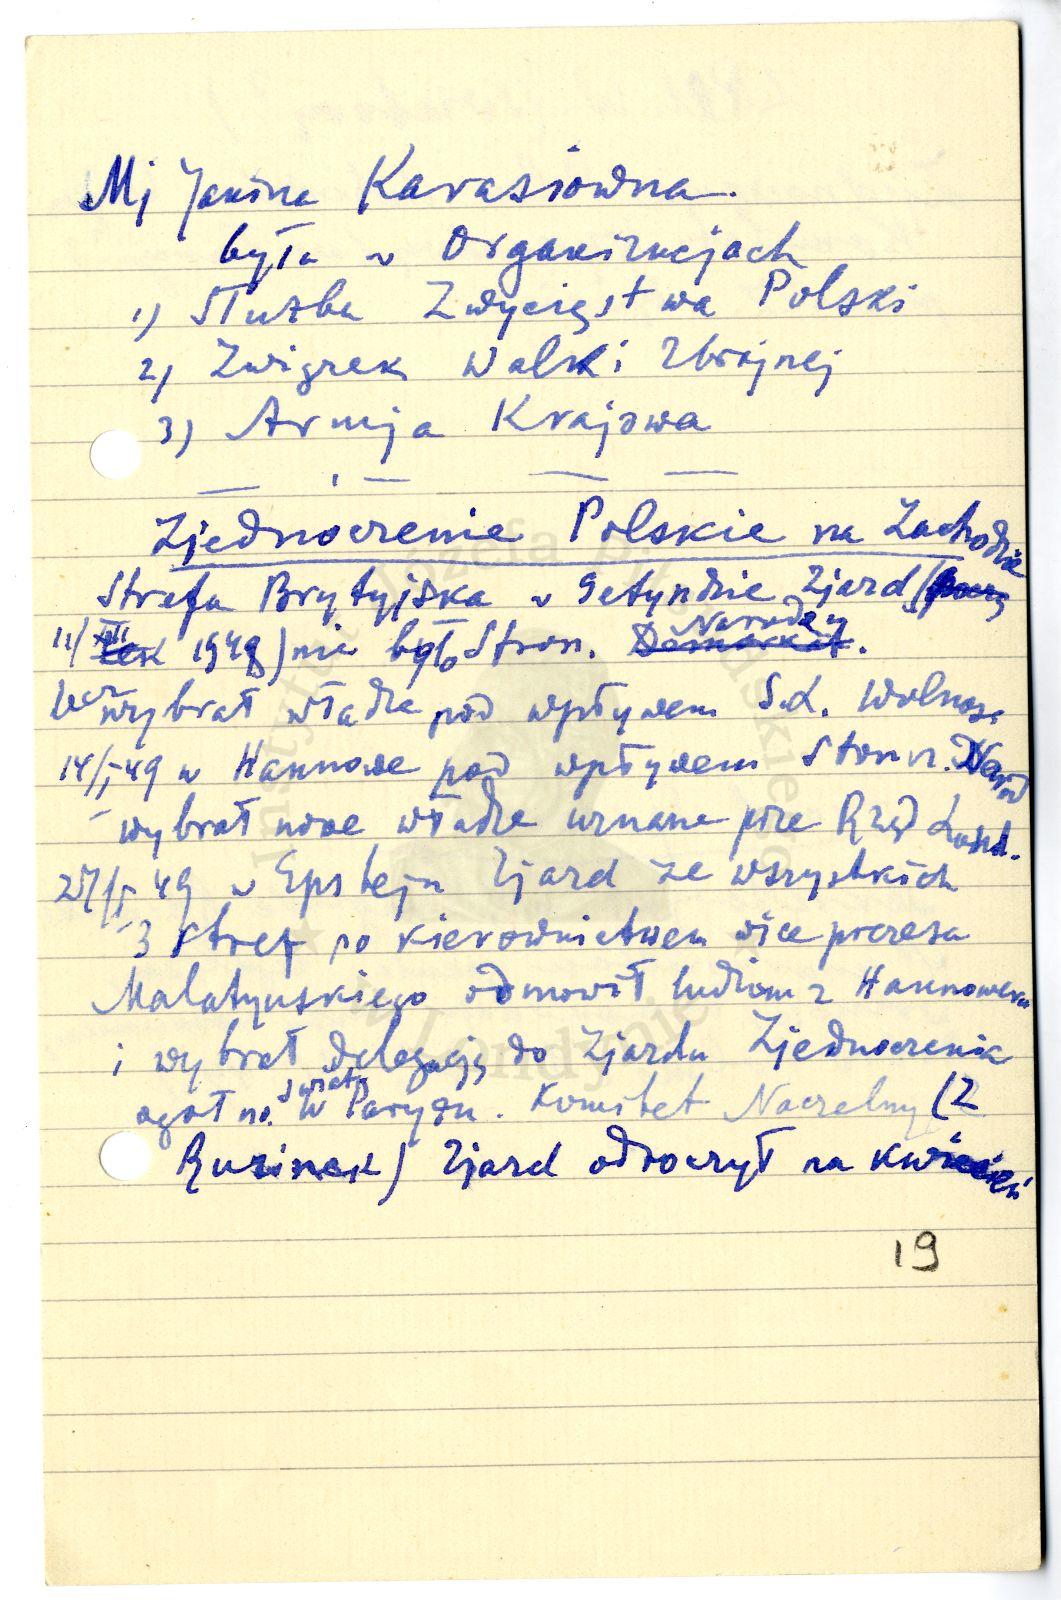 Mj Janina Karasiówna.
była w Organizacjach
1) Służba Zwycięstwa Polski
2) Związek Walki Zbrojnej
3) Armja Krajowa
Zjednoczenie Polskie na Zachodzie
Strefa Brytyjska w Getyndze Zjazd
11/XII 1948) nie było Stron. Narodowej
wybrał władze pod wpływem S.L. Wolność
14/I 49 w Hannowe pod wpływem Stron. Narod
wybrał nowe władze uznane prze Rząd Lond.
27/I 49 w Epstejn Zjazd ze wszystkich
3 stref po kierownictwem vice prezesa
Malatyńskiego odmówił ludziom z Hannoweru
i wybrał delegację do Zjazdu Zjednoczenia
ogólno. świat w Paryżu. Komitet Naczelny (Z
Rusinek) Zjazd odroczył na kwiecień
19
Instytut Józefa Piłsudskiego
w Londynie